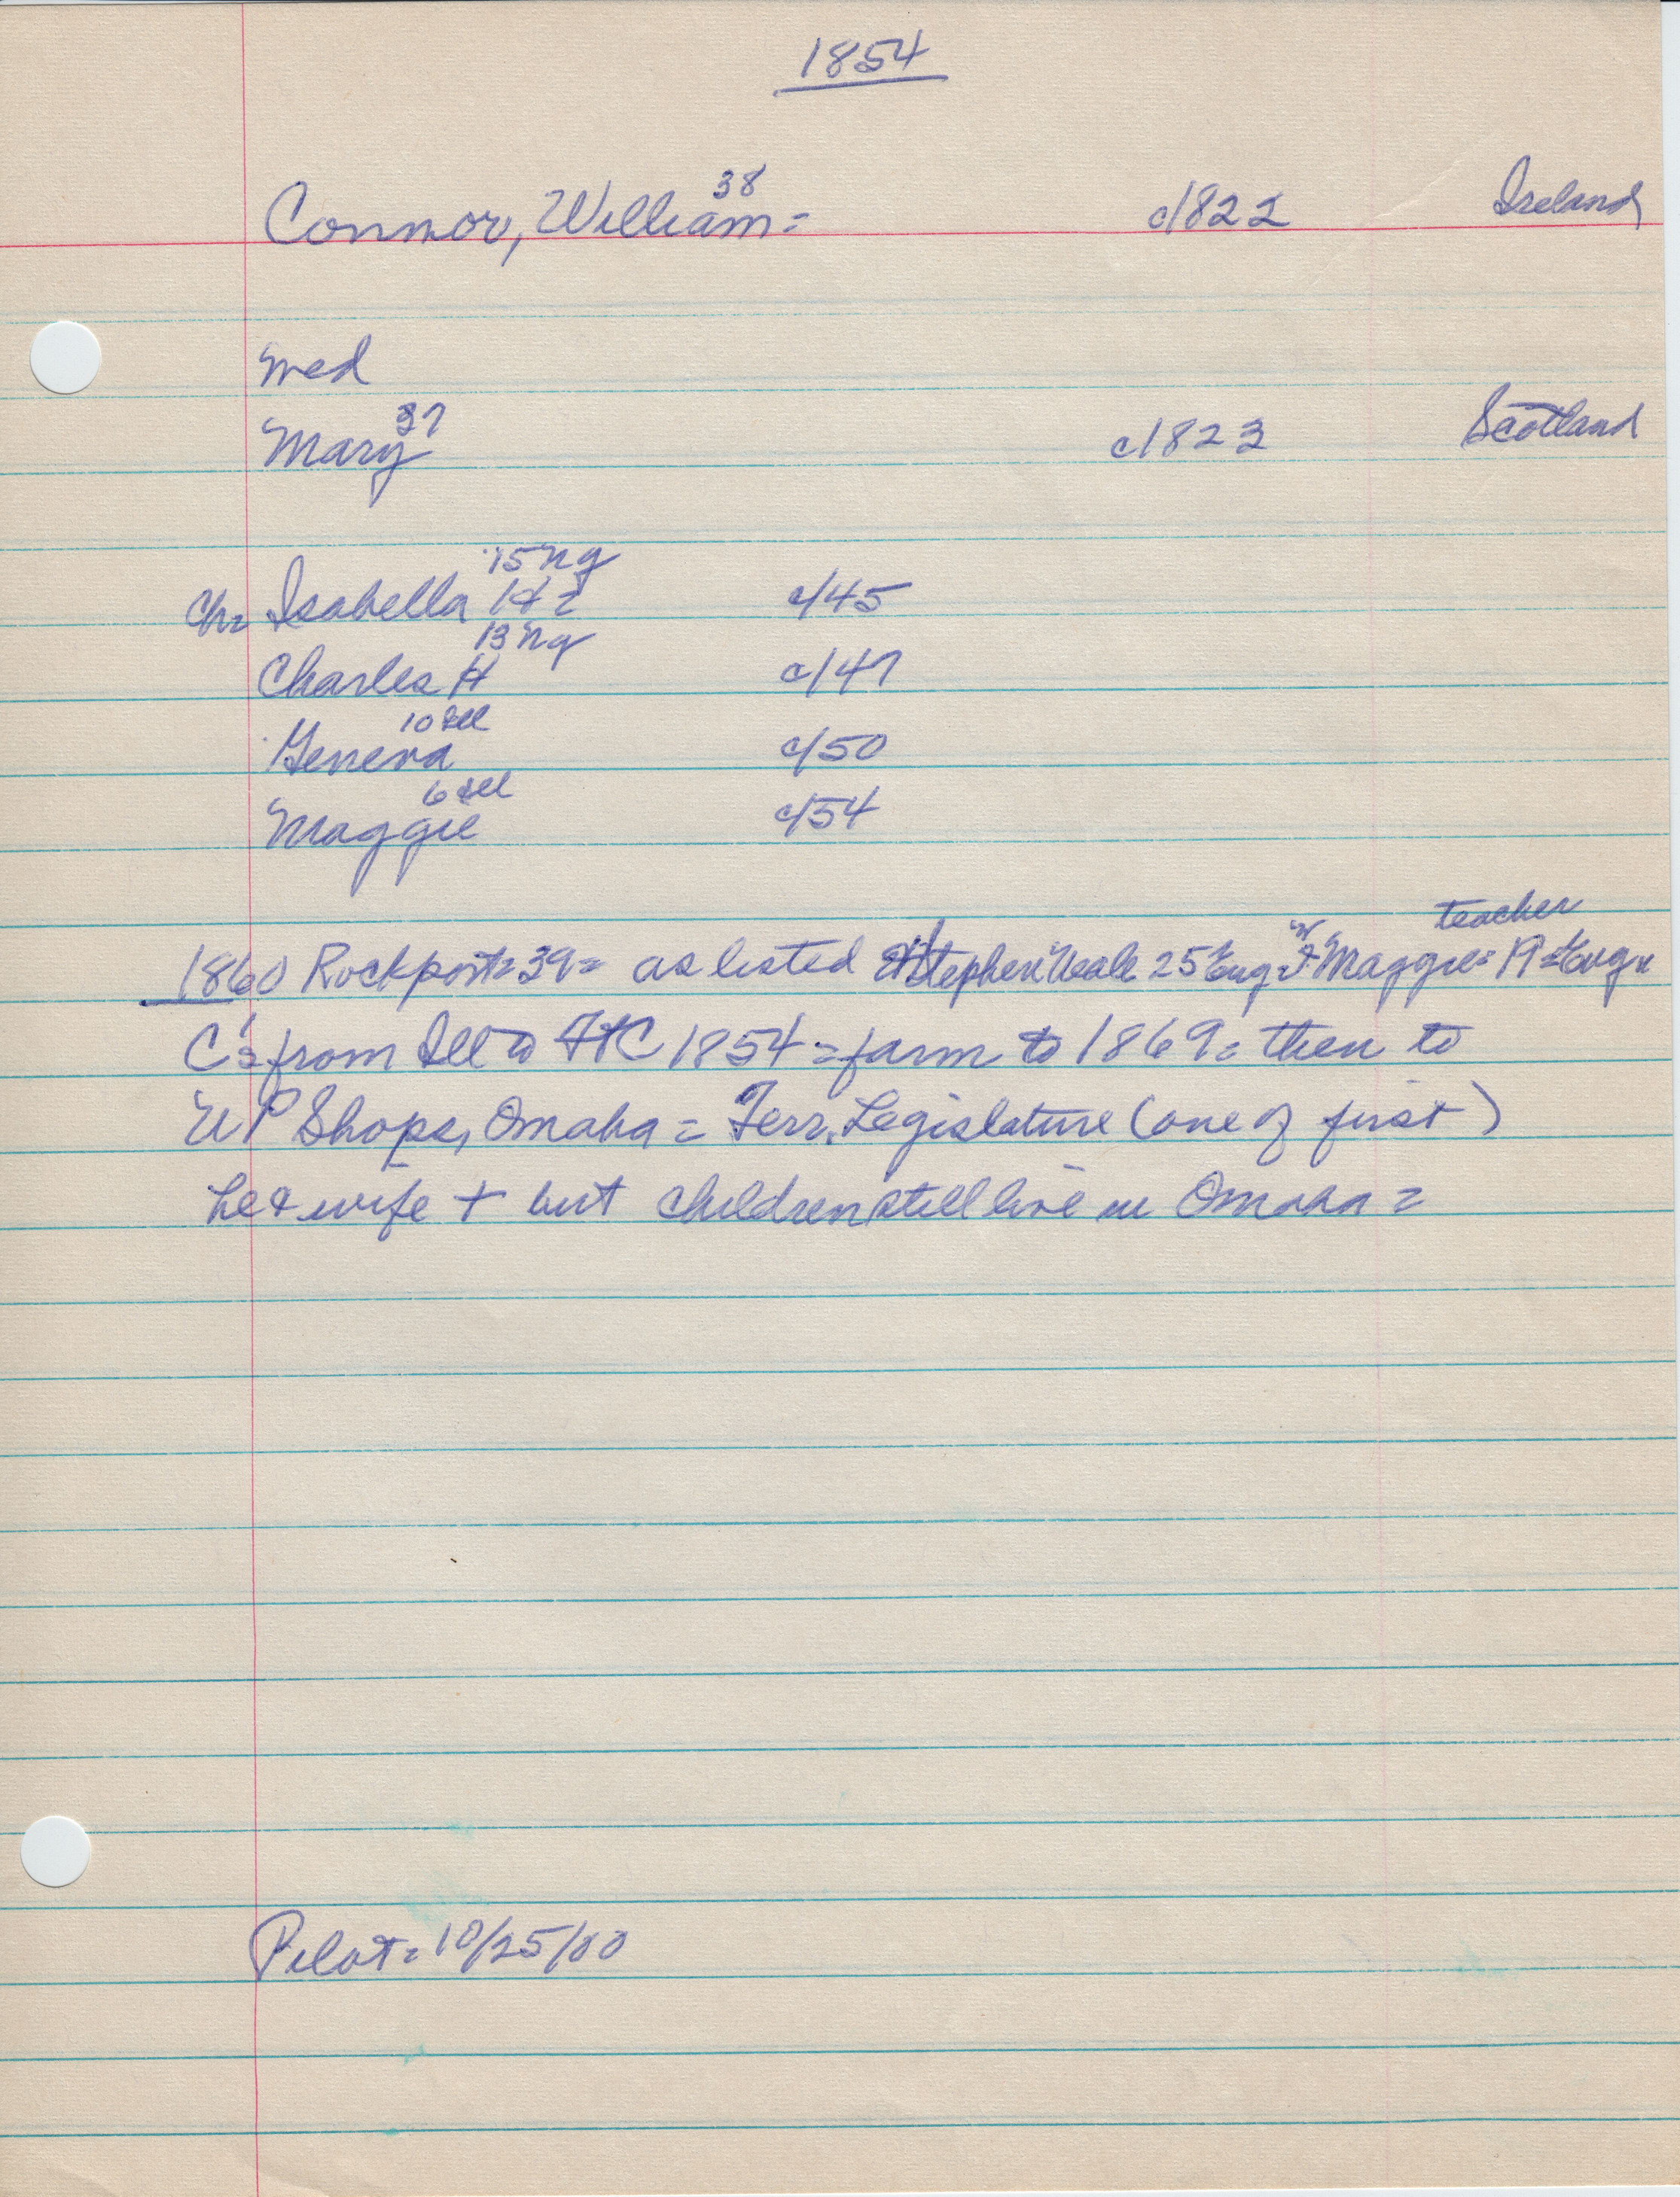 1854
38
Connor, William = c/1822 Ireland
med
37
Mary c/1823 Scotland
15 ny
Ch= Isabella H = c/45
13 ny
Charles H c/47
10 Ill
Geneva c/50
6 Ill
Maggie c/54
teacher
1860 Rockport= 39= as listed Stephen 25 Eng = Maggie= 19 = Eng =
C's from Ill to FtC 1854 = farm to 1869 = then to
UP Shops, Omaha = Terr. Legislature (one of first)
he & wife + but children still live in Omaha =
Pilot = 10/25/00